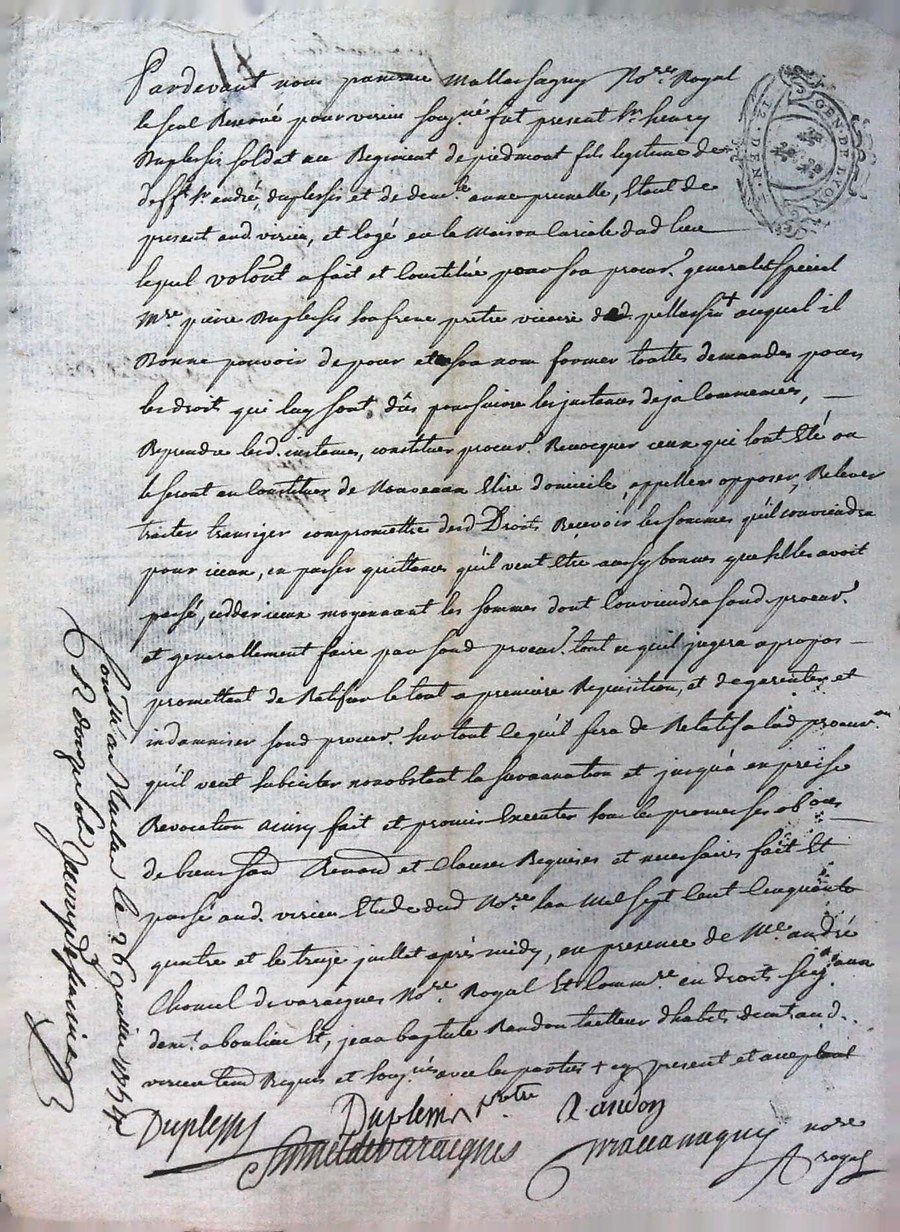 Pardevant nous Notre Royal
le seul Reservé pour virieu sousgné fut present Sr henry
Duplessis soldat au Regiment de piedmont fils legitime de
defft Sr andré duplessis et de demlle anne prunelle, Etant de
present aud virieu, et logé en la Maison Curiale dud lieu
lequel volont a fait et Constitué pour son procur. general et special
Mre pierre Duplessis son frere pretre vicaire de auquel il
Donne pouvoir de pour et en son nom former toutes demandes pour
les droits qui luy sont dûs poursuivre les jnstances deja Commencées,
Reprendre lesd. instances, constituer procur. Revocquer ceux qui l'ont Eté ou
le seront en Constituer de Nouveaux Elire domicile, appeller opposer, Relever
traiter transiger compromettre desd Droits Recevoir les sommes qu'il conviendra
pour iceux, en passer quittances qu'il veut Etre aussy bonnes que s'il les avoit
passé, cedder iceux moyennant les sommes dont Conviendra sond. procur.
et generallement faire par sond procur. tout ce quil jugera apropos
promettant de Ratifier le tout a premiere Requisition, et de garentir et
indamniser sond procur. sur tout ce qu'il fera de Relatif a lad procur.on
qu'il veut subcister nonobstant la surannation et jusqu'a expresse
Revocation ainsy fait et promis Executer sous les promesses
de biens Renond et Clauses Requises et necessaires fait Et
passé aud. virieu Etude dud Nore lan Mil sept Cent Cinquante
quatre et le treize juillet après midy, en presence de Me andré
Chomel de varaignes Nore Royal Et Commre en droits
demt. a boulieu Et, jean baptiste Randon tailleur d'habits demt aud.
virieu temd Requis et sousgnés avec les parties + cy present et acceptant
Duplessis Duplessis Randon
Chomel de varaignes nore
royal
Con.lé a le 26 juillet 1754
R douze sols